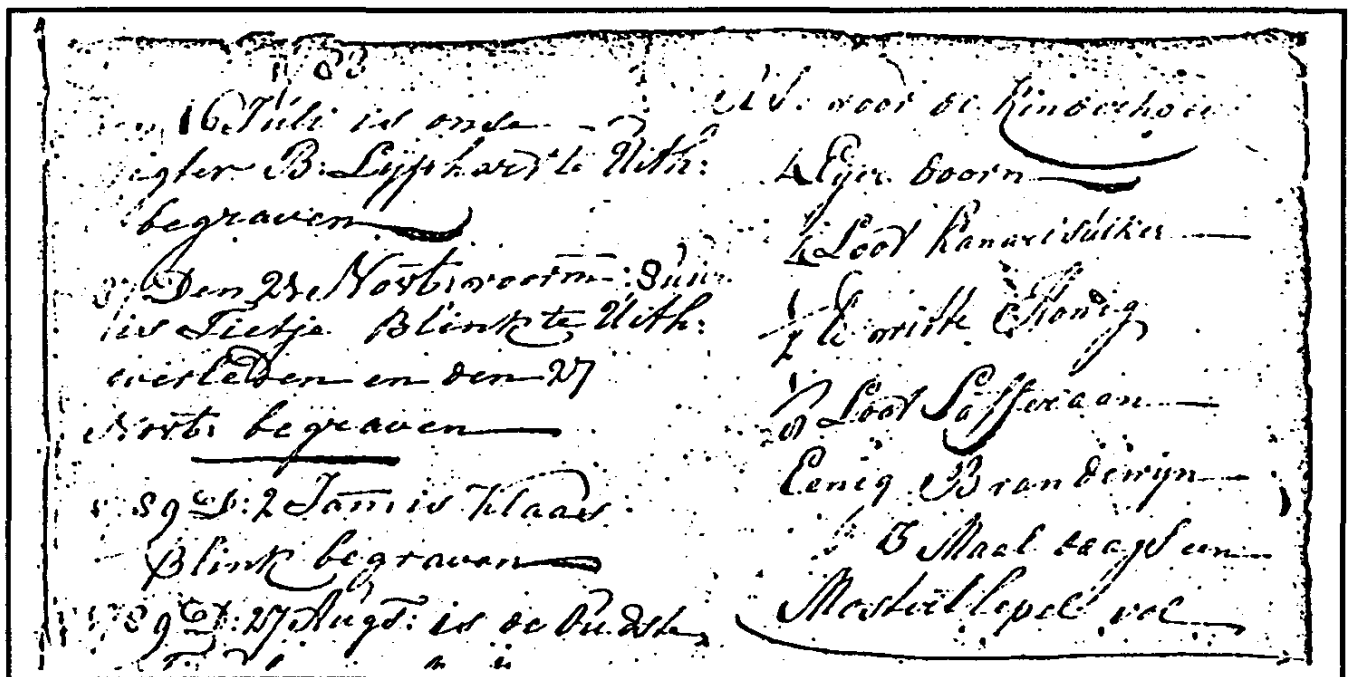 16 Juli is onse
B: Lijphart te Uith:
begraven
Den 21 Novb: voorm: 8 uur
is Tietje Blink te Uith:
overleden en den 27
Novb: begraven
89 D: 2 Jan is Klaas
Blink begraven
1789 D: 27 Augt: is de Oudste
voor de Kinderhoest
4 Eijer doorn
4 Loot Kandeisuiker
1/2 lb witte Honig
1/8 Loot Safferaan
Eenig Brandewijn
3 Maal daags een
Mostert lepel vol